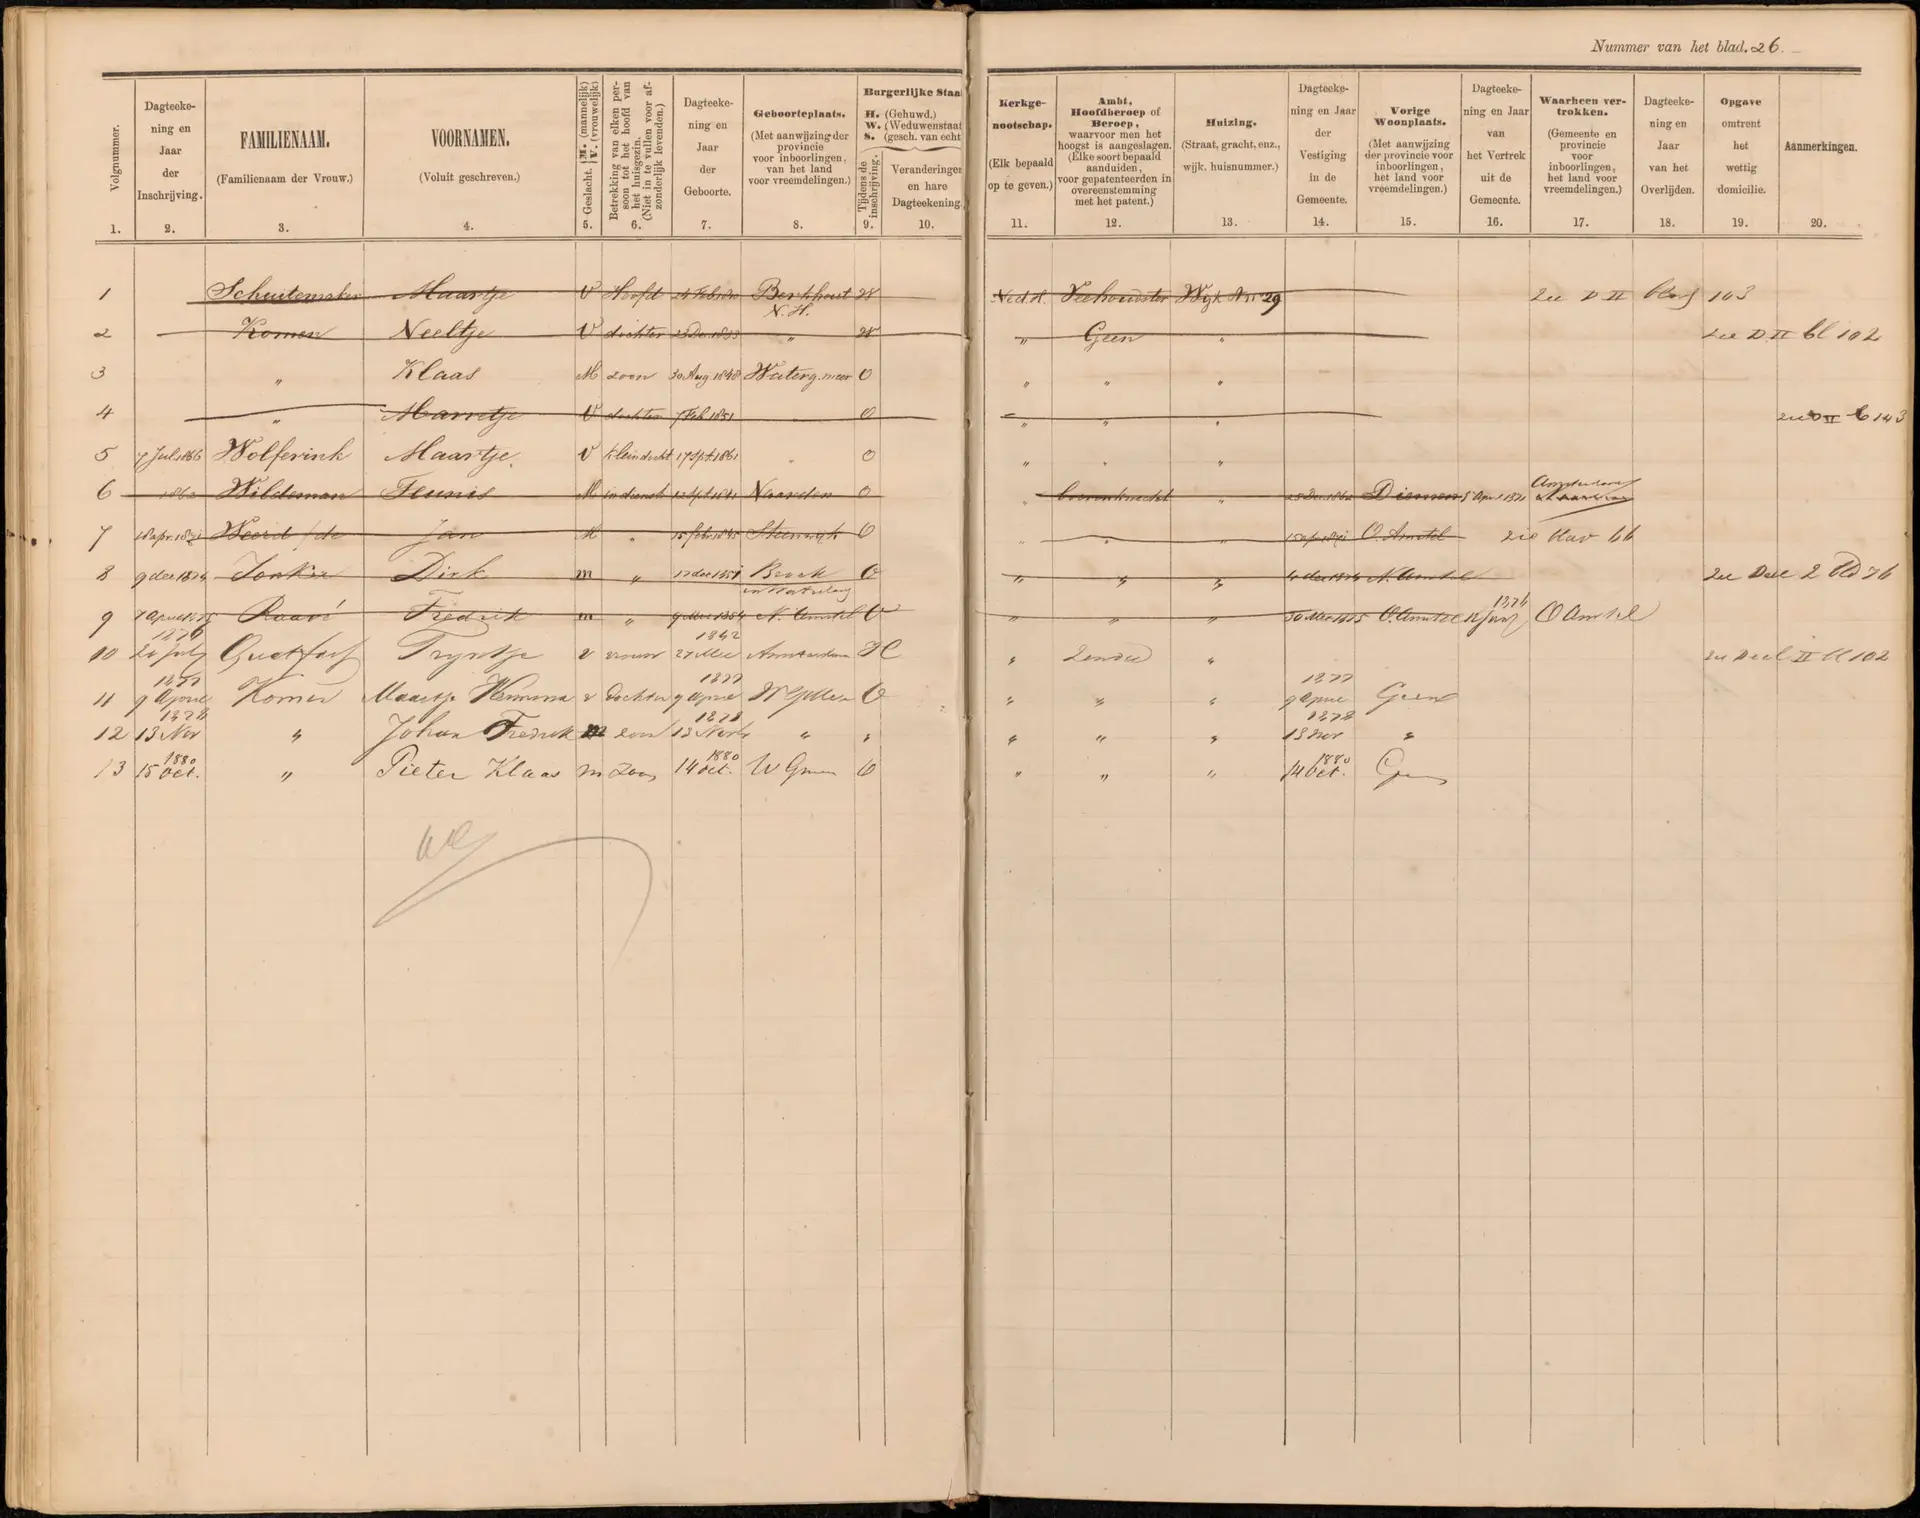 Nummer van het blad. 26.
Volgnummer.
1.
Dagteeke-
ning en
Jaar
der
Inschrijving.
2.
FAMILIENAAM.
(Familienaam der Vrouw.)
3.
VOORNAMEN.
(Voluit geschreven.)
4.
Geslacht. { M. (mannelijk) V. (vrouwelijk)
5.
Betrekking van elken per-
soon tot het hoofd van
het huisgezin.
(Niet in te vullen voor af-
zonderlijk levenden.)
6.
Dagteeke-
ning en
Jaar
der
Geboorte.
7.
Geboorteplaats.
(Met aanwijzing der
provincie
voor inboorlingen,
van het land
voor vreemdelingen.)
8.
Burgerlijke Staa
H. (Gehuwd.)
W. (Weduwenstaat
S. (gesch. van echt
Tijdens de
inschrijving.
9.
Veranderingen
en hare
Dagteekening.
10.
Kerkge-
nootschap.
(Elk bepaald
op te geven.)
11.
Ambt,
Hoofdberoep of
Beroep,
waarvoor men het
hoogst is aangeslagen.
(Elke soort bepaald
aanduiden,
voor gepatenteerden in
overeenstemming
met het patent.)
12.
Huizing.
(Straat, gracht, enz.,
wijk, huisnummer.)
13.
Dagteeke-
ning en Jaar
der
Vestiging
in de
Gemeente.
14.
Vorige
Woonplaats.
(Met aanwijzing
der provincie voor
inboorlingen,
het land voor
vreemdelingen.)
15.
Dagteeke-
ning en Jaar
van
het Vertrek
uit de
Gemeente.
16.
Waarheen ver-
trokken.
(Gemeente en
provincie
voor
inboorlingen,
het land voor
vreemdelingen.)
17.
Dagteeke-
ning en
Jaar
van het
Overlijden.
18.
Opgave
omtrent
het
wettig
domicilie.
19.
Aanmerkingen.
20.
1 Schuitemaker Maartje V Hoofd Berkhout N.H. W Ned. H. Veehoudster Wijk A no 29 zie D II blad 103
2 Komen Neeltje V dochter " W " Geen " zie D. II bl 102
3 " Klaas M zoon 30 Aug. 1848 Waterg. meer O " " "
4 " Marretje V dochter 7 Feb. 1851 " O " " " zie D II b 143
5 7 Jul. 1866 Wolferink Maartje V kleindocht 17 Spt. 1861 " O " " "
6 1862 Wildeman Teunis M in dienst Naarden O " boerenknecht " Diemen 5 Apr. 1871 Amsterdam
7 Weerd /de Jan M " Steenwijk O " " " O. Amstel zie blad 66
8 9 dec 1874 Jonker Dirk m " 17 dec 1851 Broek O " " " 4 dec 1874 N. Amstel zie Deel 2 bld 76
9 Fredrik m " N. Amstel O " " " O. Amstel 1876 O Amstel
10 1876 20 July Tryntje v vrouw 1842 27 Mei Amsterdam H " zonder " zie Deel II bl 102
11 1877 9 April Komen Maartje Hermina v Dochter 1877 9 April O " " " 1877 9 April Geen
12 1878 13 Nov " Johan Fredrik m zoon 1878 13 Nov " " " " " 1878 13 Nov "
13 1880 15 Oct. " Pieter Klaas m zoon 1880 14 Oct. O " " " 1880 14 Oct. Geen